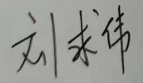 刘求伟